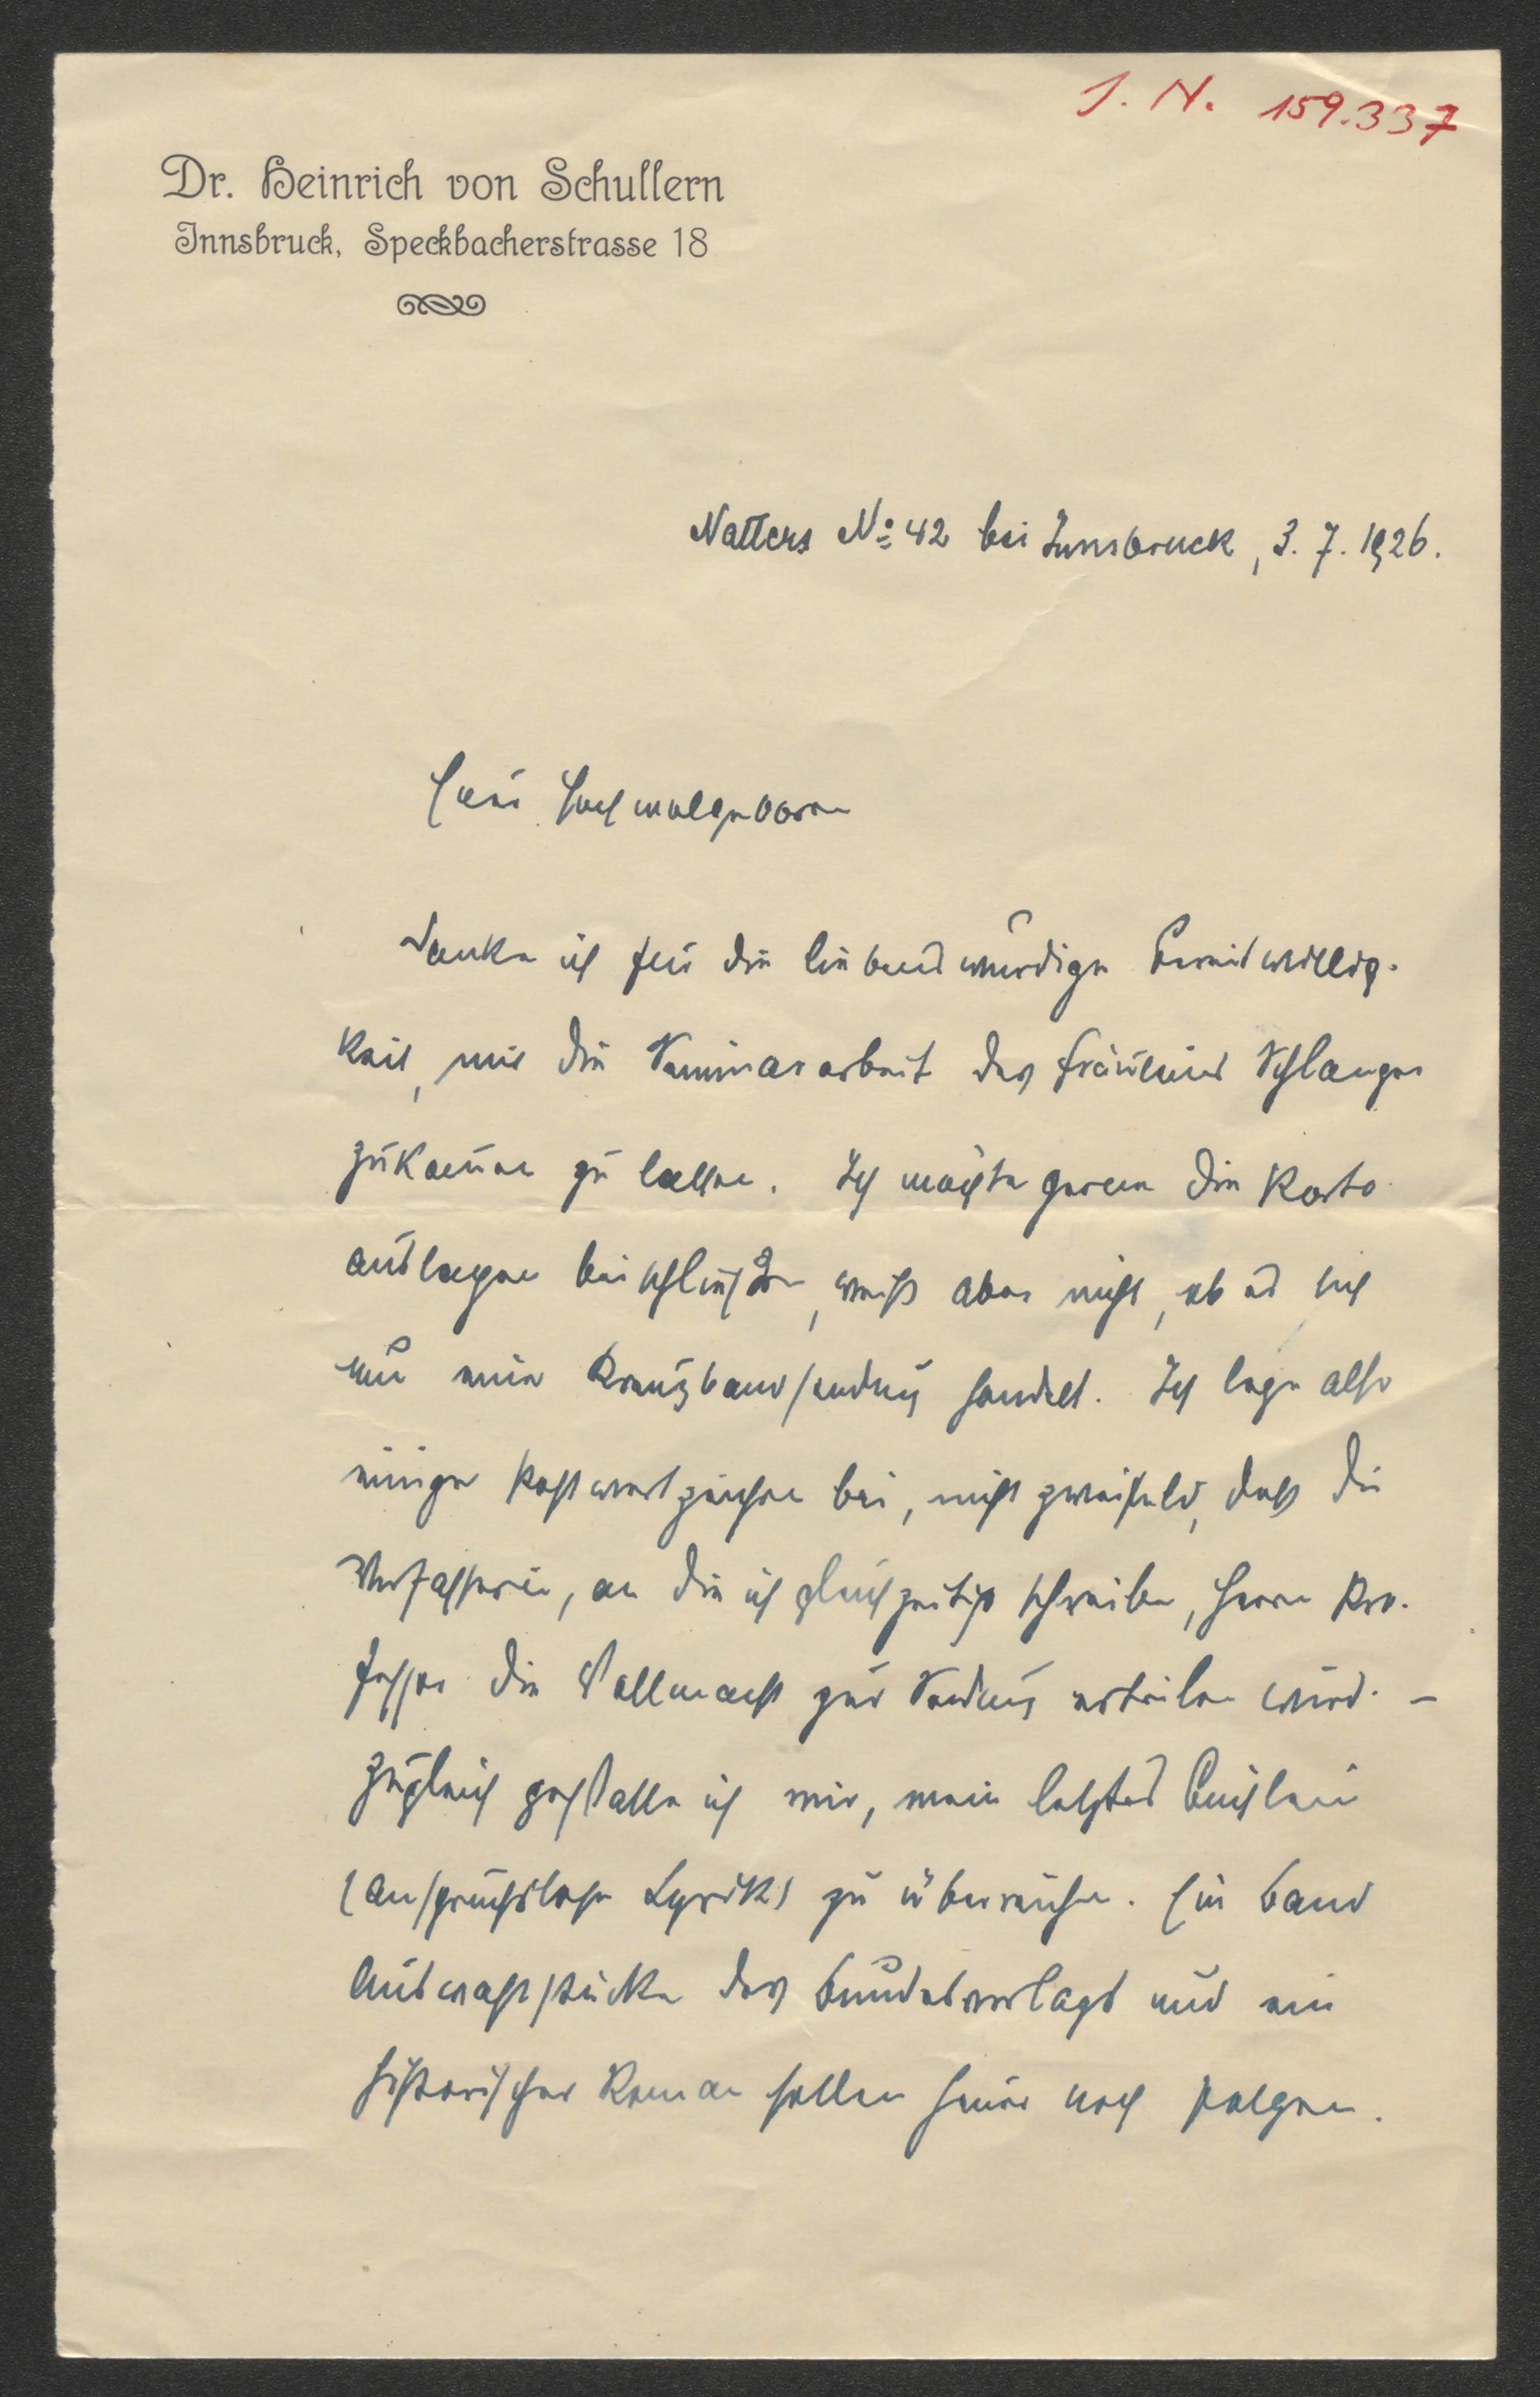 J. N. 159.337
Dr. Heinrich von Schullern
Innsbruck, Speckbacherstrasse 18
Natters No 42 bei Innsbruck, 3. 7. 1926.
Euer Hochwolgeboren
danke ich für die liebenswürdige Bereitwillig-
keit, mir die Seminararbeit des Fräuleins Schlanger
zukommen zu lassen. Ich möchte gerne die Porto
auslagen beischließen, weiß aber nicht, ob es sich
um eine Kreuzbandsendung handelt. Ich lege also
einige Postwertzeichen bei, nicht zweifelnd, dass die
Verfasserin, an die ich gleichzeitig schreibe, Herrn Pro-
fessor die Vollmacht zur Sendung erteilen wird. –
Zugleich gestatte ich mir, mein letztes Büchlein
(anspruchslose Lyrik) zu überreichen. Ein Band
Auswahlstücke des Bundesverlags und ein
historischer Roman sollen heuer noch folgen.